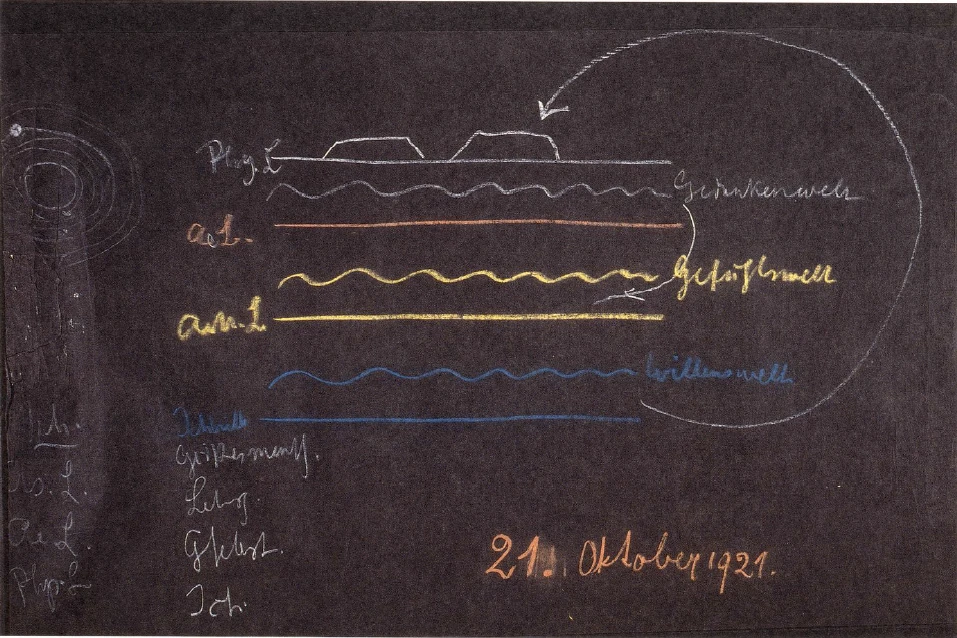 Phy. L
Gedankenwelt
Ae L.
Gefühlswelt
Astr. L
Willenswelt
Geistesmensch.
Lebsg.
Gselbst.
Ich.
Ich.
As. L.
Ae L.
Phys L
21. Oktober 1921.